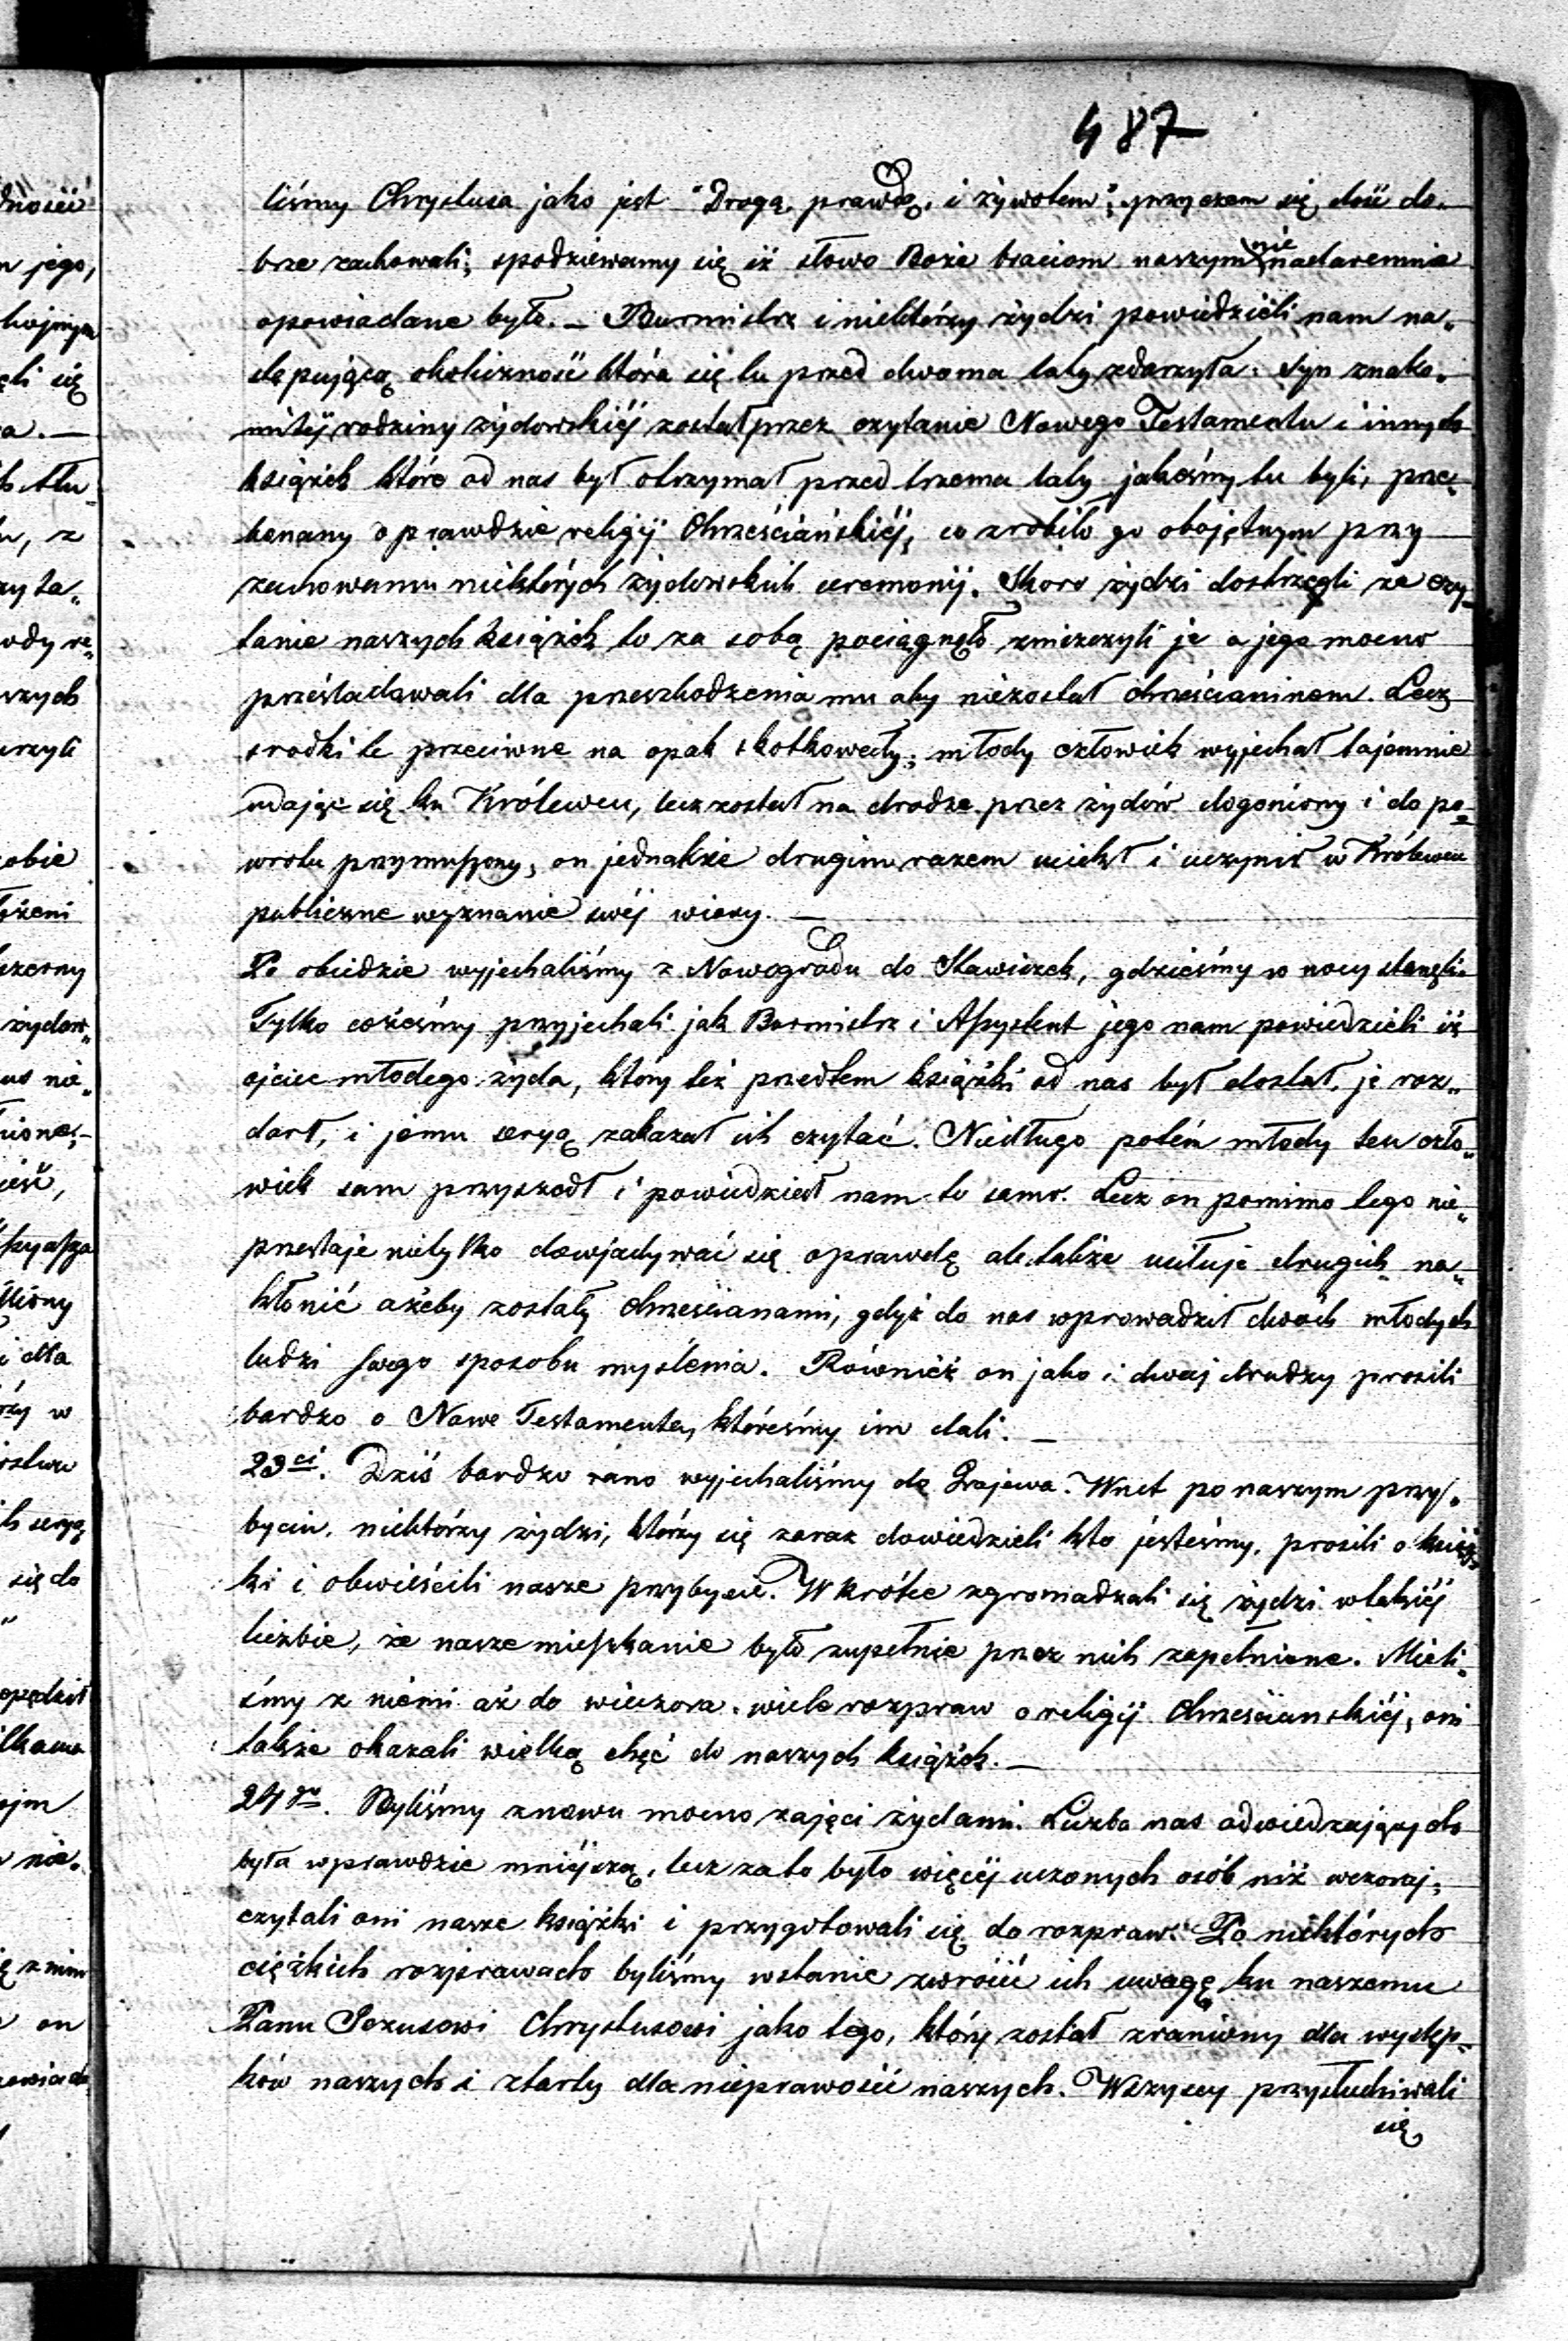 487
liśmy Chrystusa jako jest "Drogą, prawdą, i żywotem"; przyczem się dość do„
brze zachowali; spodziewamy się iż słowo Boże braciom naszym nie nadaremnie
opowiadane było. — Burmistrz i niektórzy żydzi powiedzieli nam na„
stępującą okoliczność która się tu przed dwoma laty zdarzyła: Syn znako„
mitéj rodziny żydowskiéj został przez czytanie Nowego Testamentu i innych
książek które od nas był otrzymał przed trzema laty jakeśmy tu byli, prze„
konany o prawdzie religij Chrześciańskiéj, co zrobiło go obojętnym przy
zachowaniu niektórych żydowskich ceremonij. Skoro żydzi dostrzegli że czy„
tanie naszych książek to za sobą pociągnęło zniszczyli je a jego mocno
prześladowali dla przeszkodzenia mu aby niezostał chrześcianinem. Lecz
srodki te przeciwne na opak skutkowały; młody człowiek wyjechał tajemnie
udając się ku Królewcu, lecz został na drodze przez żydów dogoniony i do po„
wrotu przymuszony, on jednakże drugim razem uciekł i uczynił w Królewcu
publiczne wyznanie swéj wiary. —
Po obiedzie wyjechaliśmy z Nowogrodu do Stawiszek, gdzieśmy w nocy stanęli.
Tylko cośmy przyjechali jak Burmistrz i Assystent jego nam powiedzieli iż
ojciec młodego żyda, ktory też przedtem książki od nas był dostał, je roz„
darł, i jemu seryą zakazał ich czytać. Niedługo potém młody ten czło„
wiek sam przyszedł i powiedział nam to samo. Lecz on pomimo tego nie„
przestaje nietylko dowjadywać się oprawdę ale także usiłuje drugich na„
kłonić ażeby zostały chrześcianami, gdyż do nas wprowadził dwóch młodych
ludzi swego sposobu myślenia. Również on jako i dwaj drudzy prosili
bardzo o Nowe Testamenta, któreśmy im dali. —
23ci. Dziś bardzo rano wyjechaliśmy do Grajewa. Wnet po naszym przy„
byciu, niektórzy żydzi, którzy się zaraz dowiedzieli kto jesteśmy, prosili o książ„
ki i obwieścili nasze przybycie. Wkrótce zgromadzali się żydzi wtakiéj
liczbie, że nasze mieszkanie było zupełnie przez nich zapełnione. Mieli„
śmy z niemi aż do wieczora wiele rozpraw o religij chrześciańskiéj, oni
także okazali wielką chęć do naszych książek. —
24go. Byliśmy znowu mocno zajęci żydami. Liczba nas odwiedzających
była wprawdzie mniejszą, lecz zato było więcéj uczonych osób niż wczoraj;
czytali oni nasze książki i przygotowali się do rozpraw. Po niektórych
ciężkich rozprawach byliśmy wstanie zwrócić ich uwagę ku naszemu
Panu Jezusowi Chrystusowi jako tego, który został zraniony dla występ„
ków naszych i starty dla nieprawości naszych. Wszyscy przysłuchiwali
się